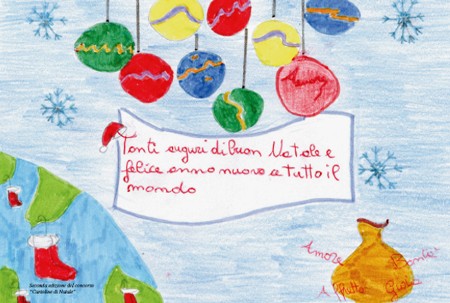 Tanti auguri di buon Natale e
felice anno nuovo a tutto il
mondo
Amore
Bontà
A Tutti
Seconda edizione del concorso
"Cartoline di Natale"